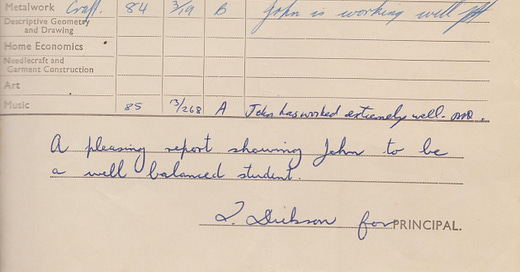 Metalwork Craft. 84 3/19 B John is working well
Descriptive Geometry
and Drawing
Home Economics
Needlecraft and
Garment Construction
Art
Music 85 13/268 A John has worked extremely well.
A pleasing report showing John to be
a well balanced student.
Dickson for PRINCIPAL.